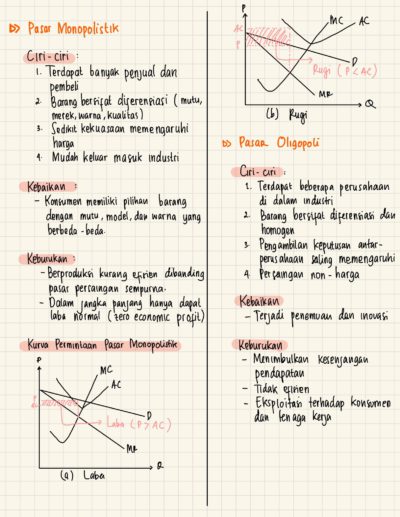 Pasar Monopolistik
Ciri-ciri :
1. Terdapat banyak penjual dan
pembeli
2. Barang bersifat diferensiasi (mutu,
merek, warna, kualitas)
3. Sedikit kekuasaan memengaruhi
harga
4. Mudah keluar masuk industri
Kebaikan :
- Konsumen memiliki pilihan barang
dengan mutu, model, dan warna yang
berbeda-beda.
Keburukan :
- Berproduksi kurang efisien dibanding
pasar persaingan sempurna.
- Dalam jangka panjang hanya dapat
laba normal (zero economic profit)
Kurva Permintaan Pasar Monopolistik
P
MC
AC
D
Laba (P > AC)
MR
Q
(a) Laba
P
MC
AC
AC
P
D
Rugi (P < AC)
MR
Q
(b) Rugi
Pasar Oligopoli
Ciri-ciri :
1. Terdapat beberapa perusahaan
di dalam industri
2. Barang bersifat diferensiasi dan
homogen
3. Pengambilan keputusan antar-
perusahaan saling memengaruhi
4. Persaingan non-harga
Kebaikan
- Terjadi penemuan dan inovasi
Keburukan
- Menimbulkan kesenjangan
pendapatan
- Tidak efisien
- Eksploitasi terhadap konsumen
dan tenaga kerja